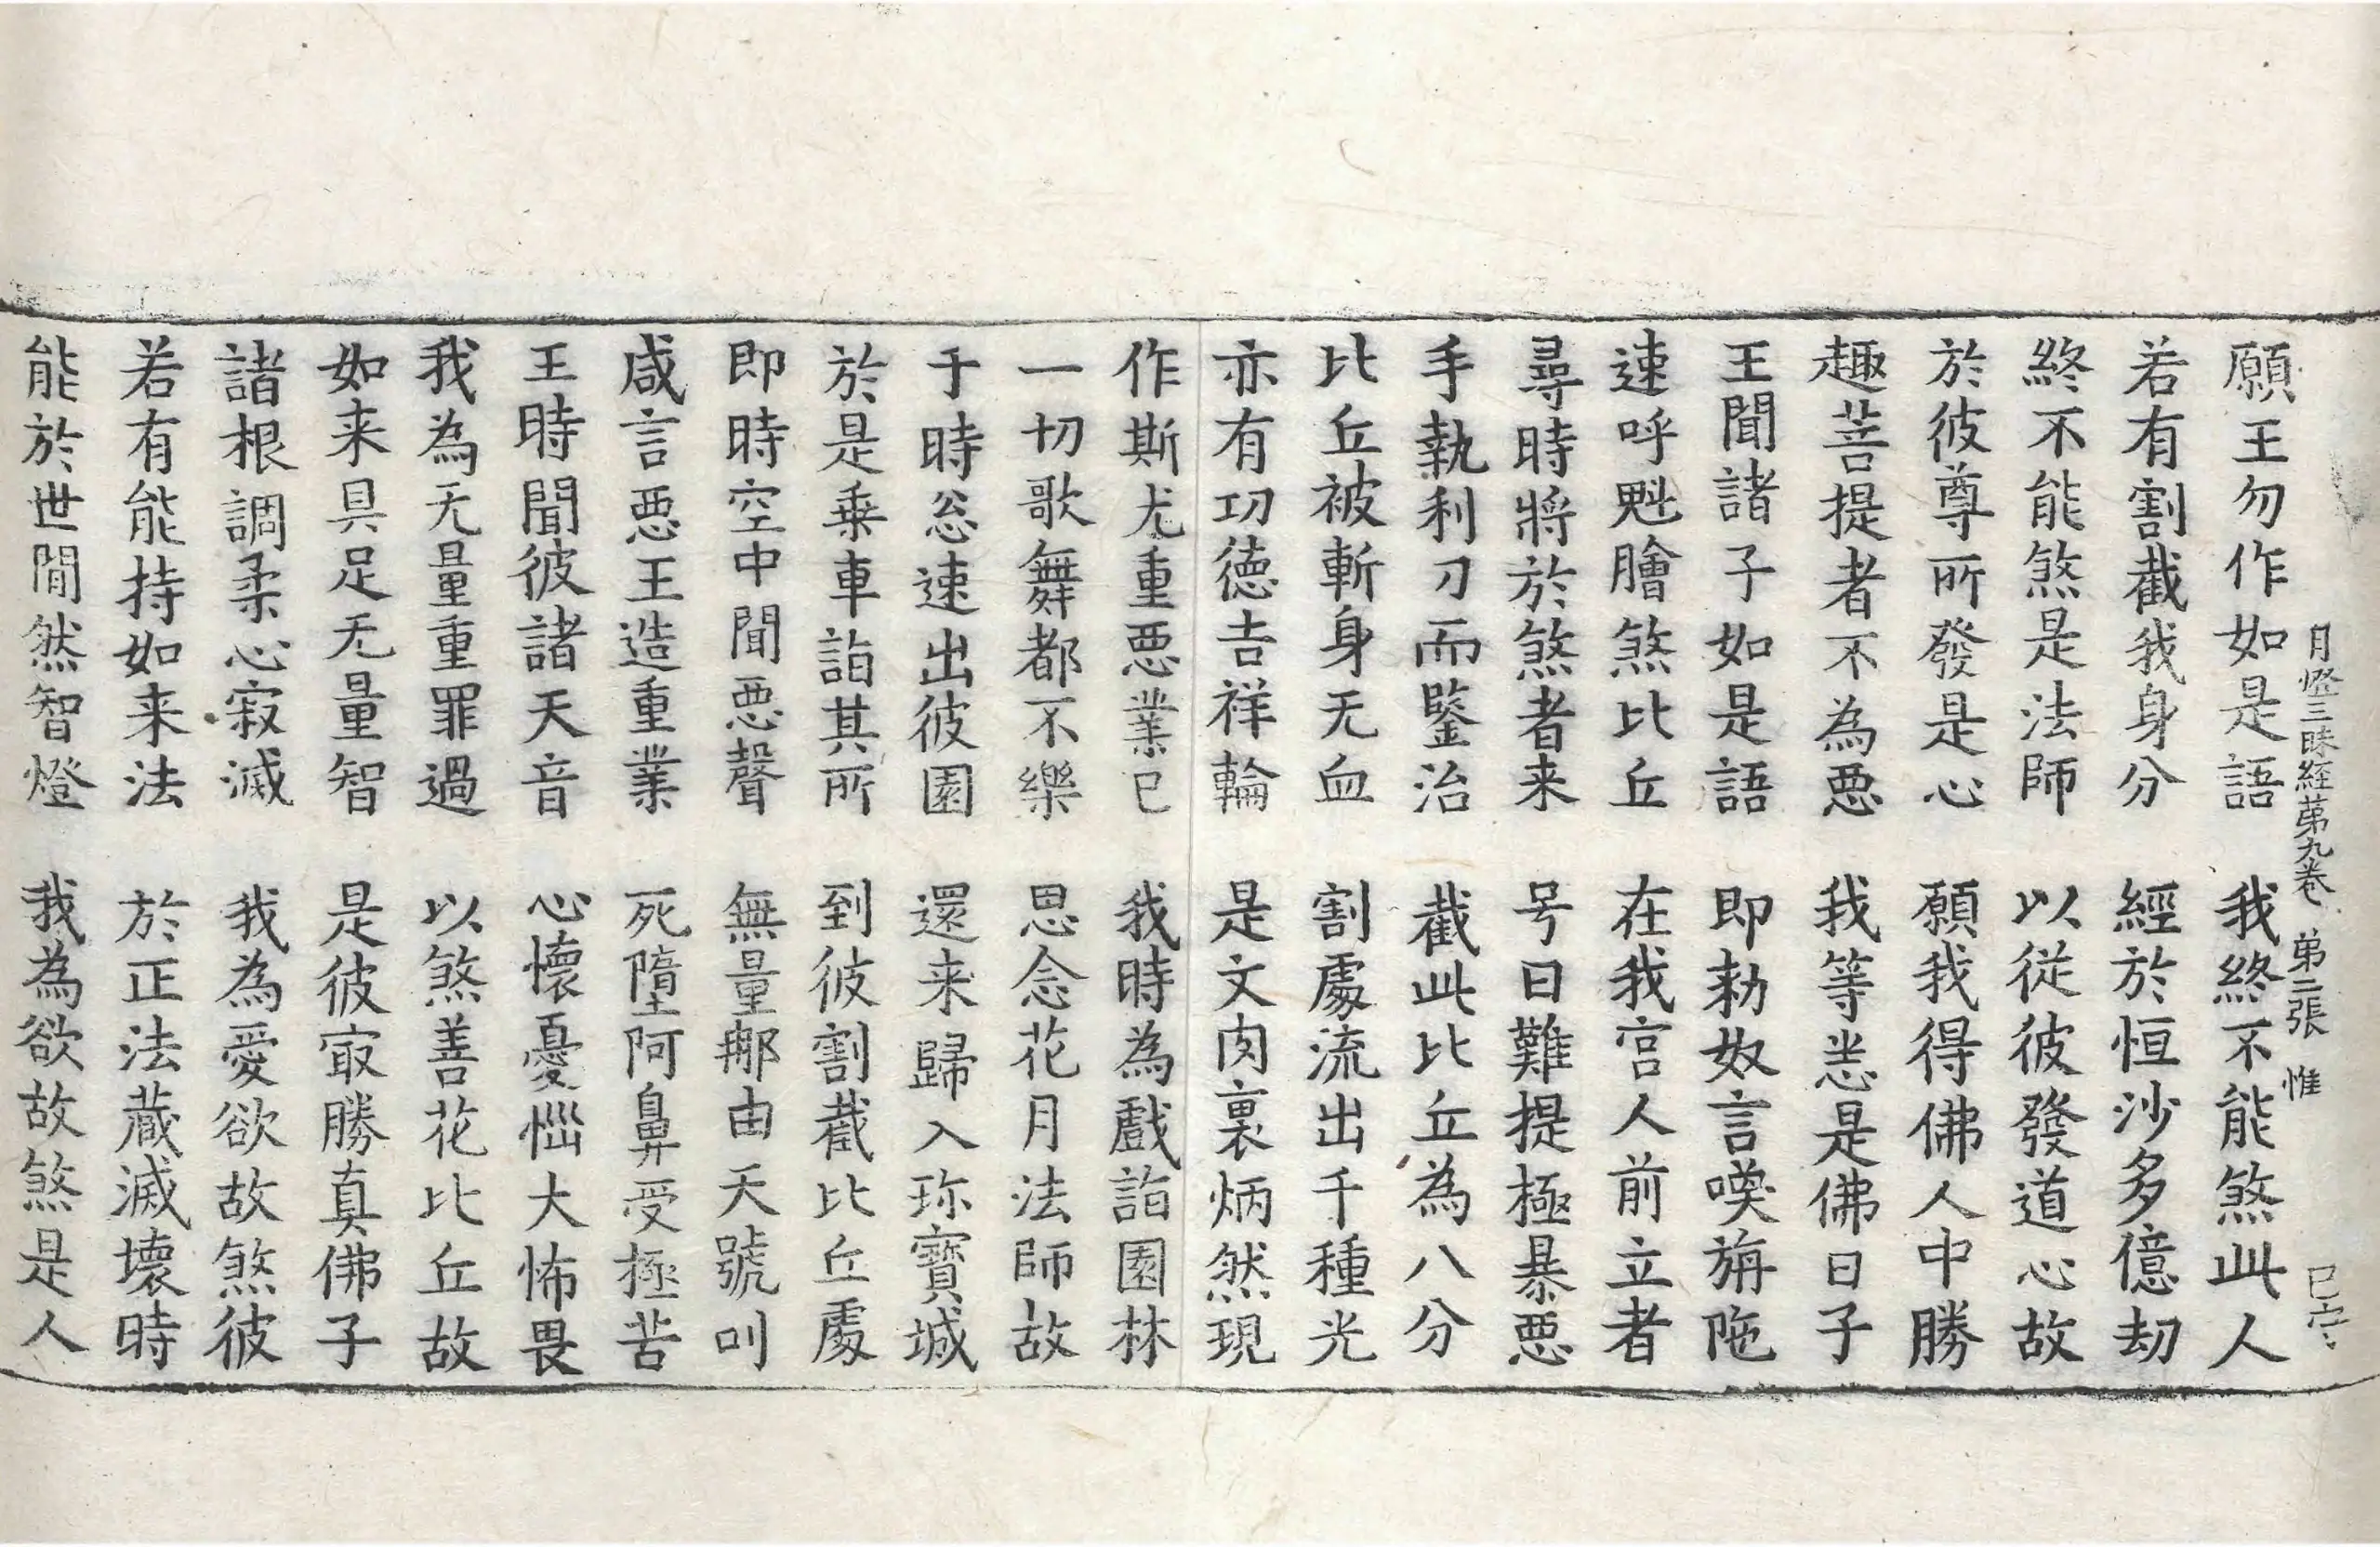 月燈三昧経苐九卷　苐二張　惟
願王勿作如是語　我終不能煞此人
若有割截我身分　經於恒沙多億劫
終不能煞是法師　以從彼發道心故
於彼尊所發是心　願我得佛人中勝
趣菩提者不為惡　我等恙是佛日子
王聞諸子如是語　即勑奴言喚旃陁
速呼魁膾煞比丘　在我宫人前立者
尋時將於煞者来　号曰難提極暴惡
手執利刀而鑒治　截此比丘為八分
比丘被斬身无血　割處流出千種光
亦有㓛德吉祥輪　是文肉裏炳然現
作斯尤重惡業已　我時為戲詣園林
一切歌舞都不樂　思念花月法師故
于時忩速出彼園　還来歸入珎寶城
於是乗車詣其所　到彼割截比丘處
即時空中聞惡聲　無量郍由天號叫
咸言惡王造重業　死墮阿鼻受極苦
王時聞彼諸天音　心懷憂惱大怖畏
我為无量重罪過　以煞善花比丘故
如来具足无量智　是彼㝡勝真佛子
諸根調柔心寂滅　我為愛欲故煞彼
若有能持如来法　於正法蔵滅壞時
能於世間然智燈　我為欲故煞是人